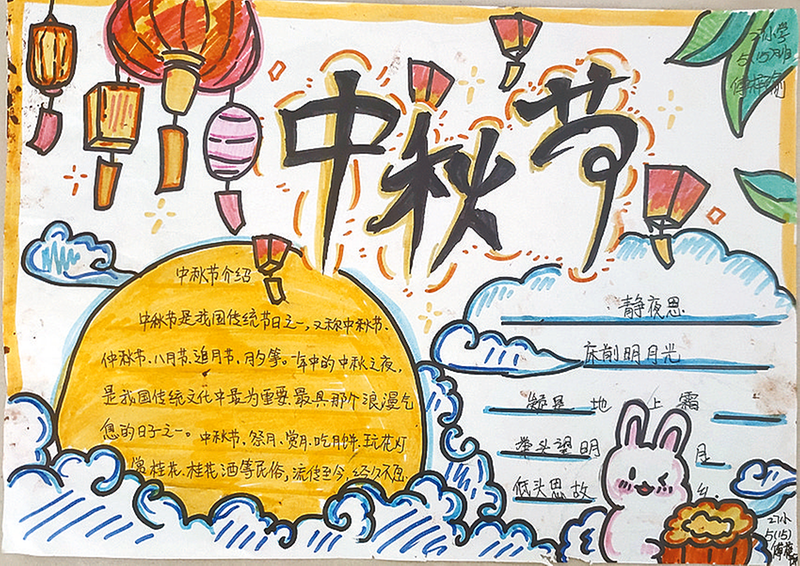 中秋节
小学
5(15)班
中秋节介绍
中秋节是我国传统节日之一,又称中秋节、
仲秋节、八月节、追月节、月夕等。一年中的中秋之夜,
是我国传统文化中最为重要、最具那个浪漫气
息的日子之一。中秋节、祭月、赏月、吃月饼、玩花灯
赏桂花、桂花酒等民俗,流传至今,经久不息
静夜思
床前明月光
疑是地上霜
举头望明月
低头思故乡.
5(15)